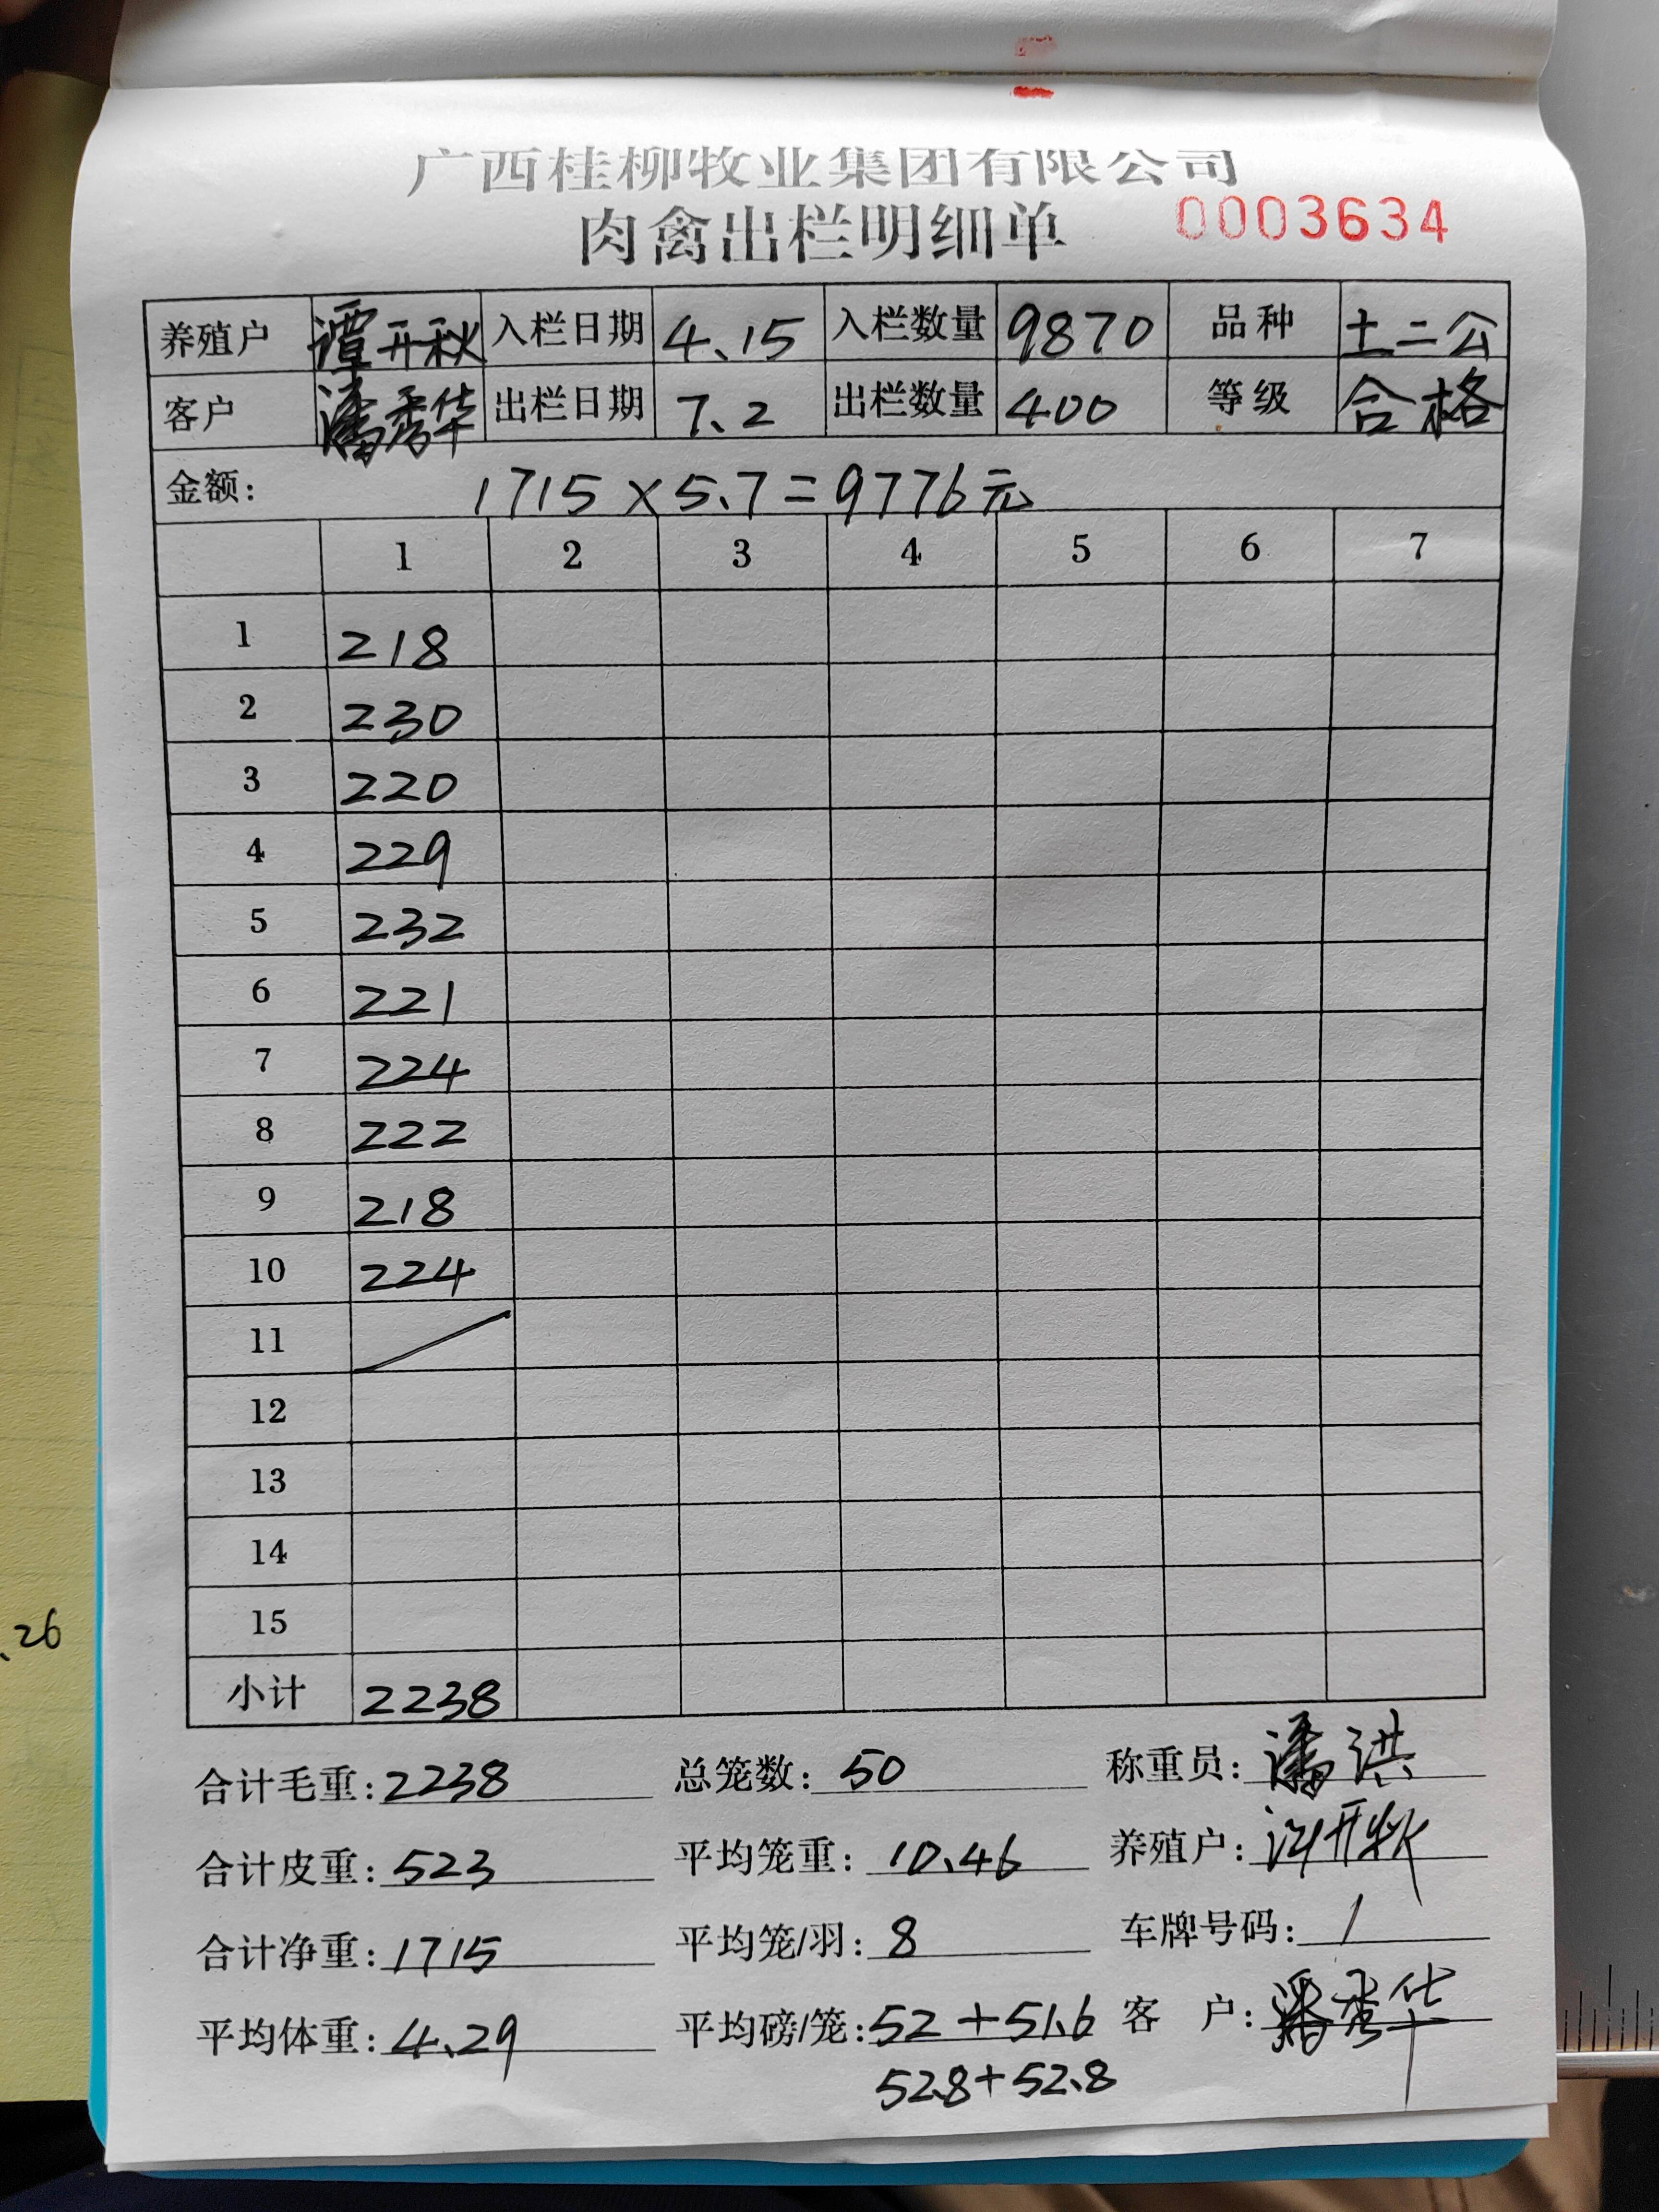 广西桂柳牧业集团有限公司
肉禽出栏明细单 0003634
养殖户 谭开秋 入栏日期 4.15 入栏数量 9870 品种 土二公
客户 潘秀华 出栏日期 7.2 出栏数量 400 等级 合格
金额: 1715×5.7=9776元
1 2 3 4 5 6 7
1 218
2 230
3 220
4 229
5 232
6 221
7 224
8 222
9 218
10 224
11
12
13
14
15
小计 2238
合计毛重:2238 总笼数:50 称重员:潘洪
合计皮重:523 平均笼重:10.46 养殖户:谭开秋
合计净重:1715 平均笼/羽:8 车牌号码:/
平均体重:4.29 平均磅/笼:52+51.6 客户:潘秀华
52.8+52.8
.26